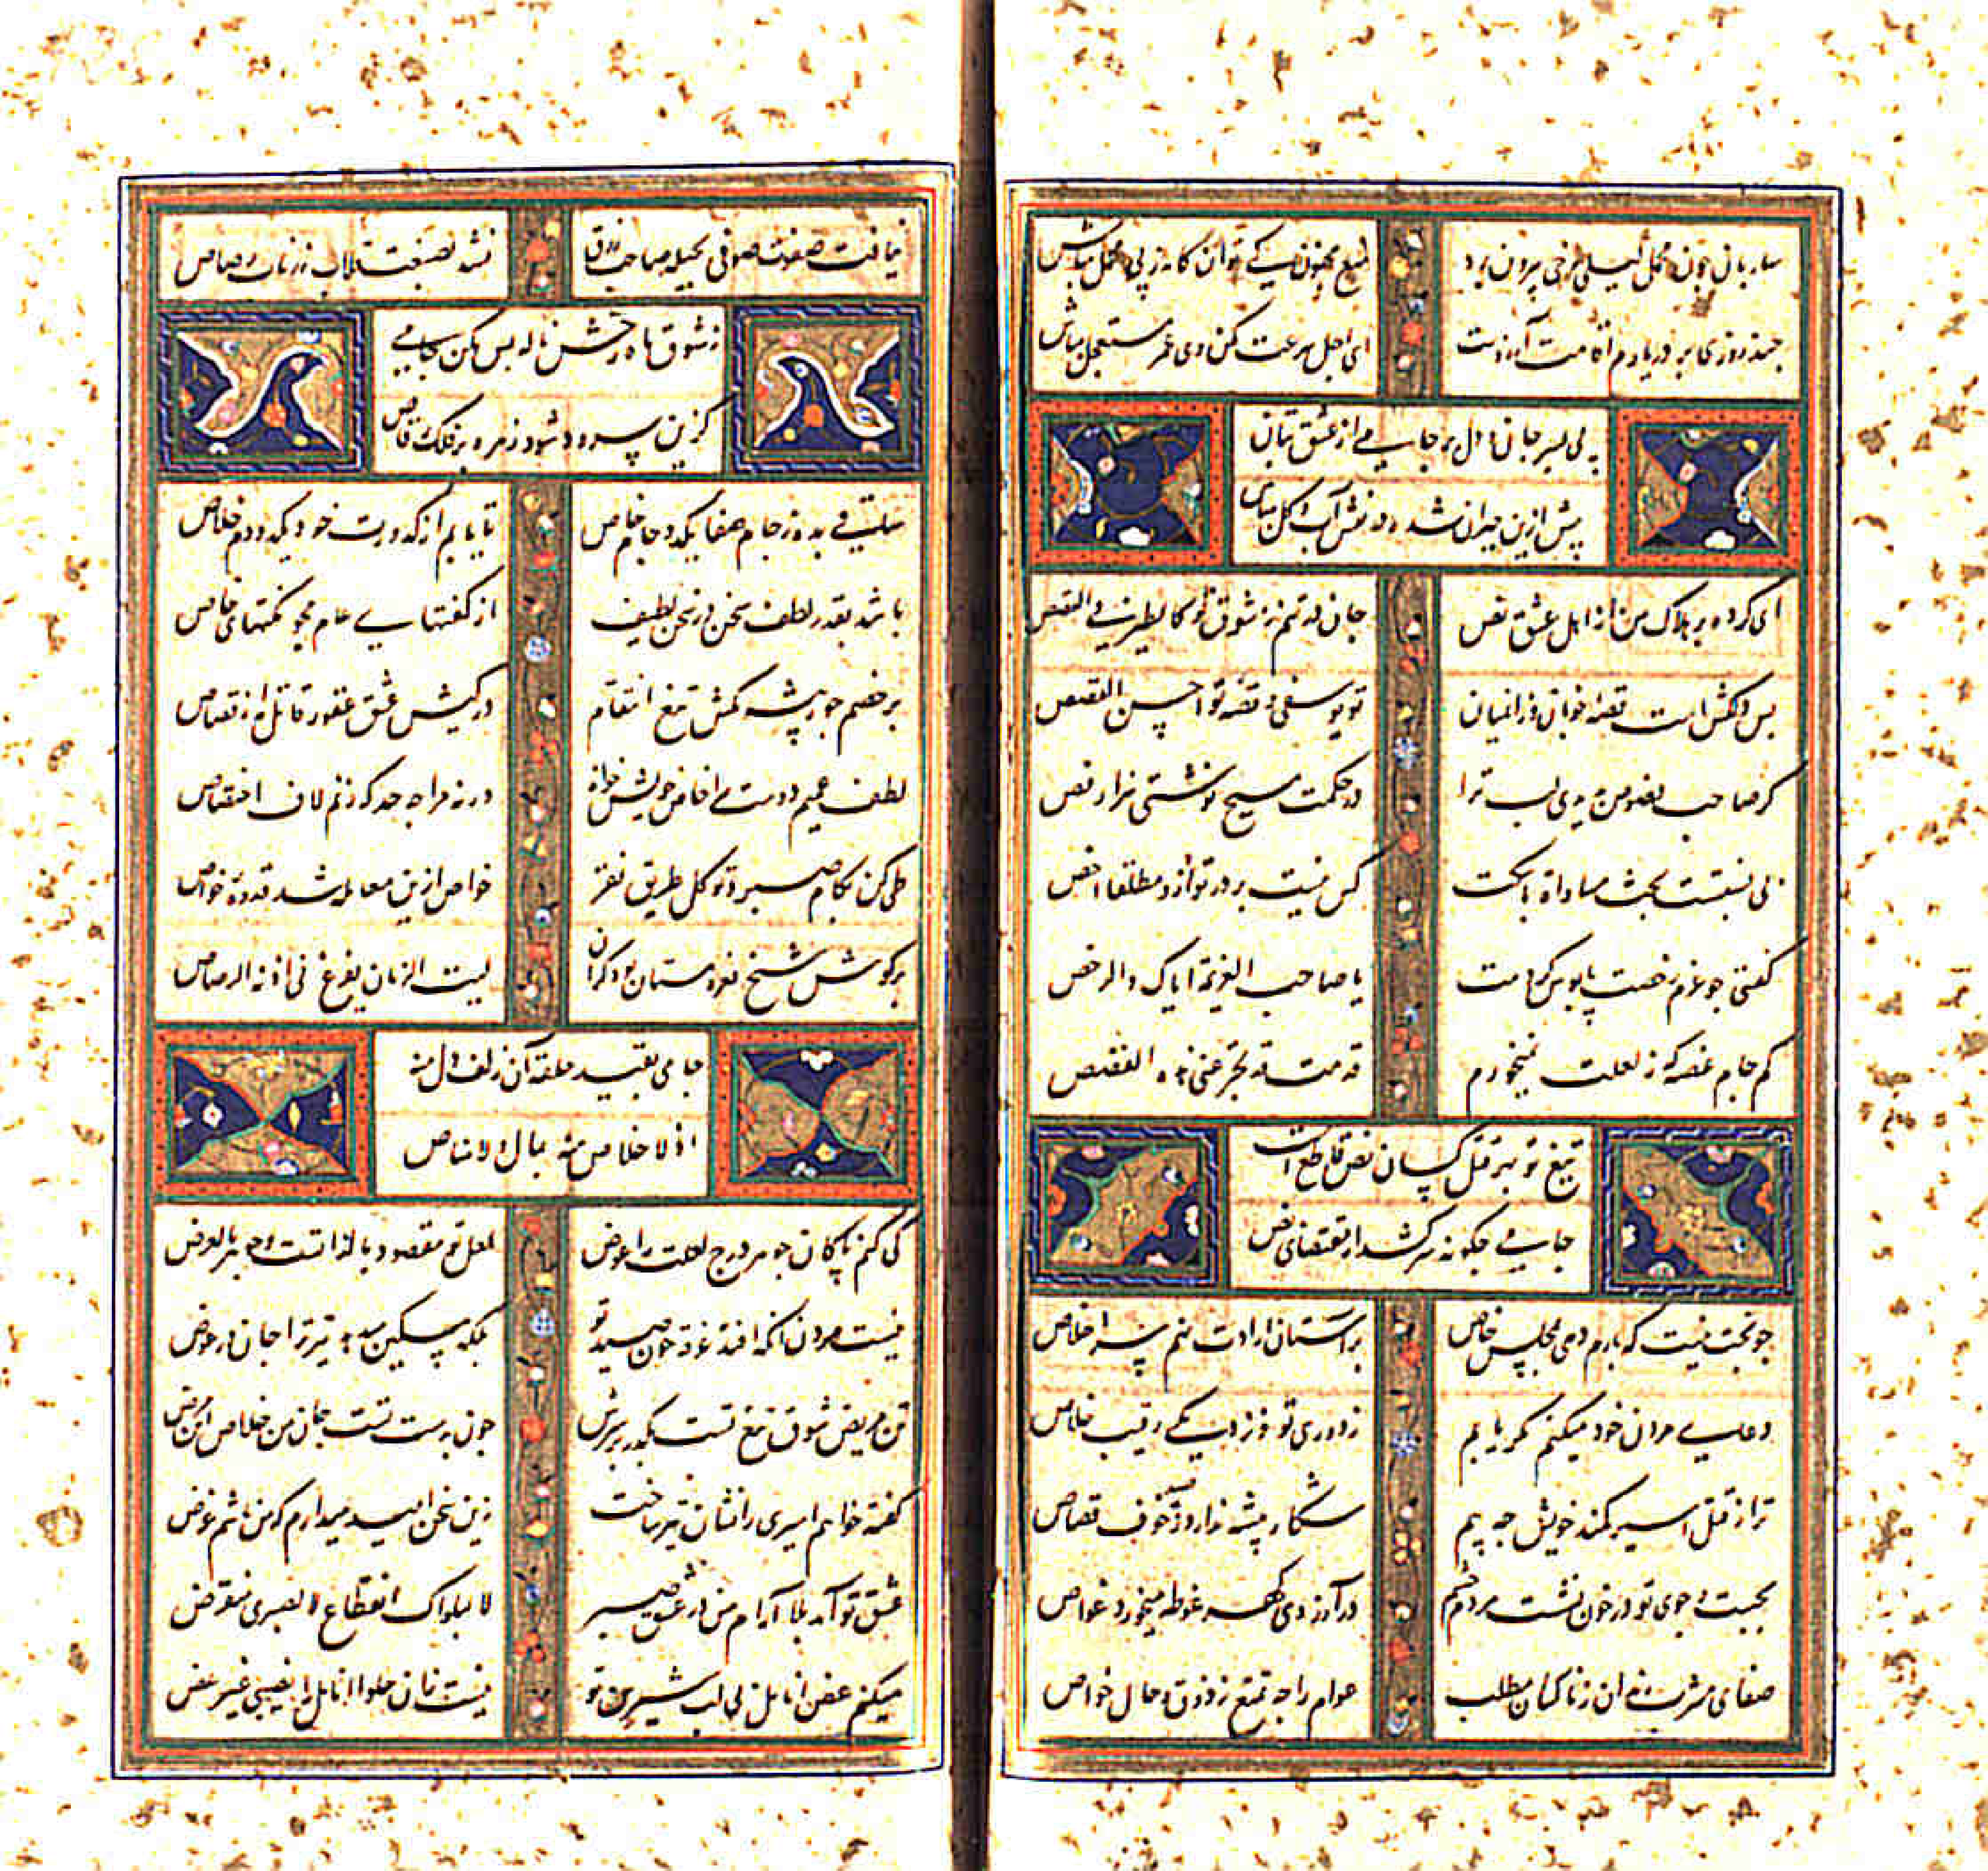 ساربان چون محمل لیلی ز حی بیرون برد
طبع مجنون نیست کی توان کاندر پی محمل مباش
چند روزی بر در یارم اقامت آرزوست
ای اجل سرعت مکن وی عمر مستعجل مباش
جان و دل جامی از عشق بتان
پیش ازین حیران شده در نقش آب و گل مباش
ای کرده بر هلاک من از اهل عشق نص
جان در تنم ز شوق تو کالطیر فی القفص
بس دلکش است قصه خوبان وز انمیان
تو یوسفی و قصه تو احسن القصص
کر صاحب نصوص بدیدی لب ترا
در حکمت مسیح نوشتی هزار فص
بی نسبتست بحث مساواة با سکت
کس نیست بر در تو ازو مطلقا اخص
کفتی جو عزم رخصت پابوس کرد مت
یا صاحب العزیمة ایاک والرخص
کم جام غصه که ز لعلت نمیخورم
قد مت من تجرعی هذه الغصص
تیغ تو بهر قتل کسان نص قاطع است
جامی جکونه سر کشد از مقتضای نص
جو بخت نیست که یارم دمی مجلس خاص
بر آستان ارادت نهم سر اخلاص
دعای مردن خود میکنم مکر یابم
ز دوری تو و نزدیکی رقیب خلاص
ترا ز قتل اسیر کمند خویش جه بیم
شکار پیشه ندارد ز خوف قصاص
بجست و جوی تو در خون نشست مردم چشم
در آرزوی کهر غوطه میخورد غواص
صفای مشرب رندان ز ناکسان مطلب
عوام را جه تمتع ز ذوق و حال خواص
نیافت صفوت صوفی بحیله صاحب زرق
نشد بصنعت قلاب زر ناب رصاص
ز شوق ماه رخش ناله بس مکن جامی
کزین سرود شود زهره بر فلک رقاص
ساقی بده ز جام صفا یکدو جام خاص
تا یابم از کدورت خود یکدو دم خلاص
باشد بقدر لطف سخن در سخن لطیف
از کفتهای عام مجو نکتهای خاص
بر خصم جور پیشه مکش تیغ انتقام
در کیش عشق عفو ز قاتل به از قصاص
لطف عمیم دوست مرا خاص خویش خواند
ورنه مرا جه حد که زنم لاف اختصاص
طی کن بکام صبر و توکل طریق فقر
خواص ازین معامله شد قدوه خواص
بر کوش شیخ نعره مستان بود کران
لیت الزمان یفرغ فی اذنه الرصاص
جامی بقید حلقه آن زلف دل منه
اذ لا خلاص منه بمال ولا مناص
کی کنم با کان جوهر درج لعلت را عوض
لعل تو مقصود بالذاتست و جوهر بالعرض
نیست مردن آنکه افتد غرقه خون صید تو
بلکه مسکین میدهد تیر ترا جان در عوض
تن مریض شوق تیغ تست مکذر بر سرش
چون بدست تست جان من خلاص از این مرض
کفته خواهم اسیری را نشان تیر ساخت
زین سخن امید میدارم که من باشم غرض
عشق تو آمد بلا آرام من در عشق صبر
لا لبلواک انقطاع لا لصبری منقرض
میکنم عض انامل بی لب شیرین تو
نیست زان حلوا انامل را نصیبی غیر عض